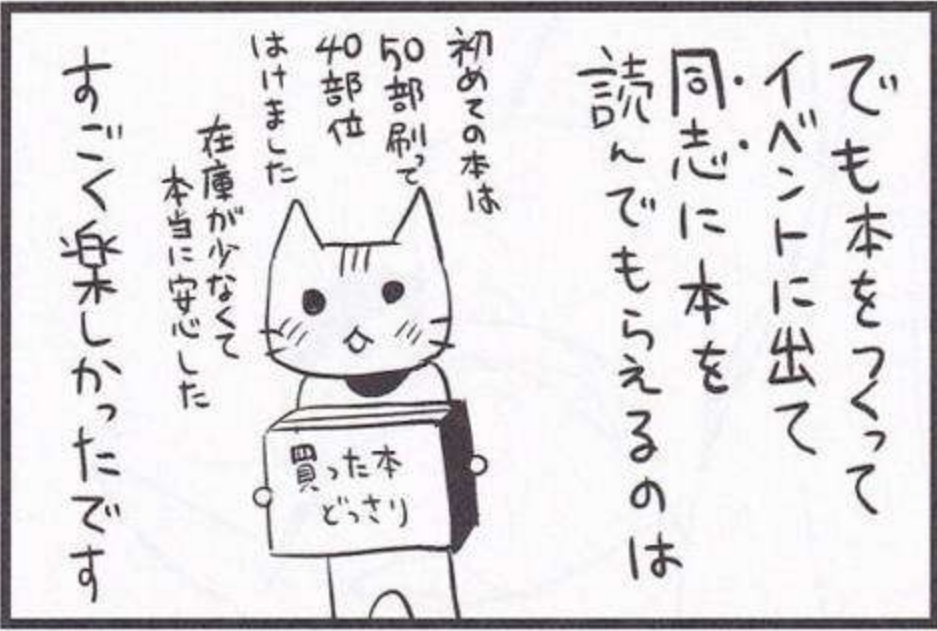 でも本をつくって
イベントに出て
同志に本を
読んでもらえるのは
初めての本は
50部刷って
40部位
はけました
在庫が少なくて
本当に安心した
買った本
どっさり
すごく楽しかったです